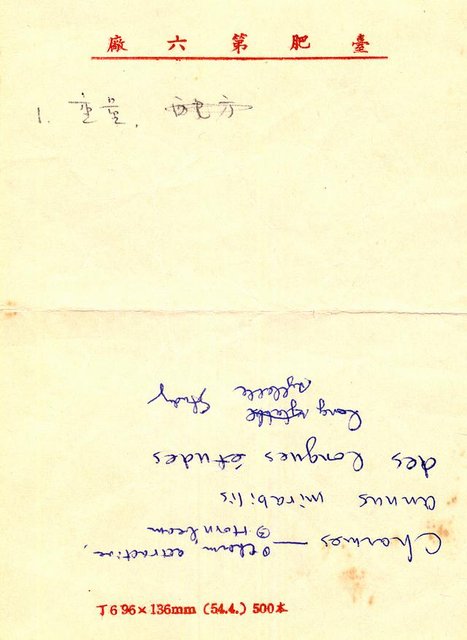 臺肥第六廠
1. 重量, 配方
Charmes — ① charm, attractive,
② Hornbeam
annus mirabilis
des longues études
long syllable study
T 6 96×136mm (54.4.) 500本